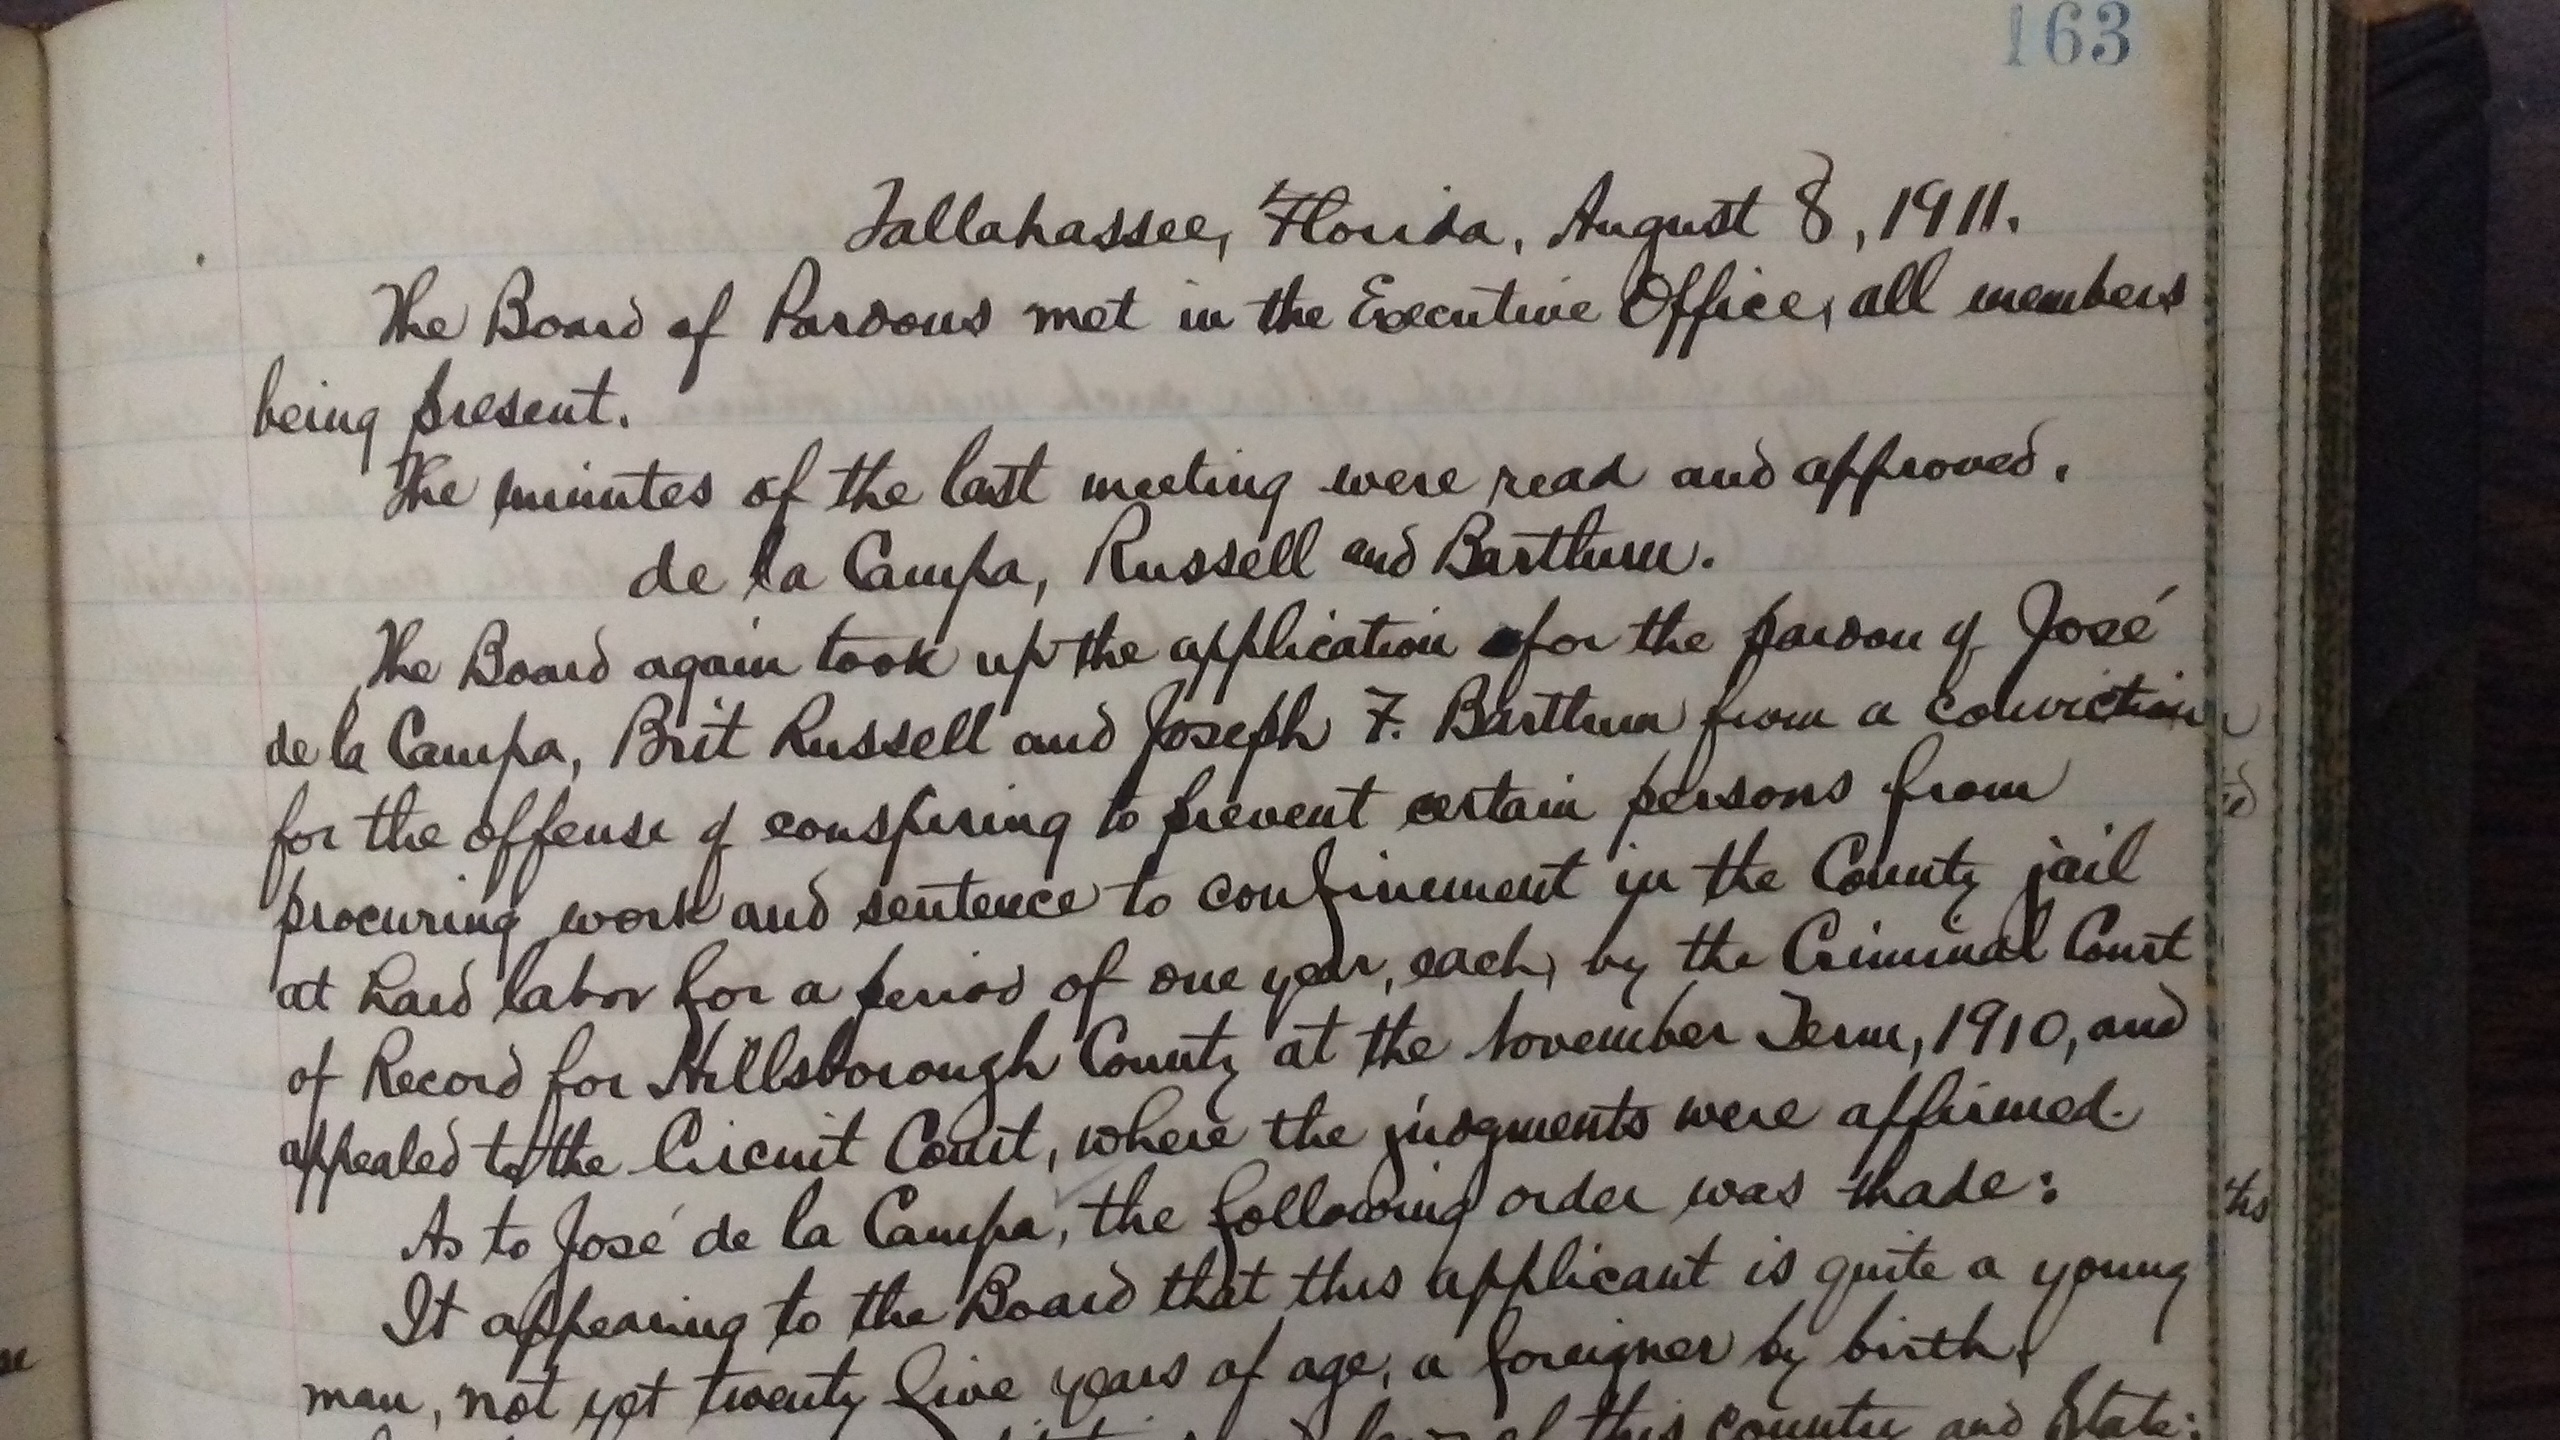 163
Tallahassee, Florida, August 8, 1911.
The Board of Pardons met in the Executive Office, all members
being present.
The minutes of the last meeting were read and approved.
de la Campa, Russell and Bartlum.
The Board again took up the application for the pardon of José
de la Campa, Brit Russell and Joseph F. Bartlum from a conviction
for the offense of conspiring to prevent certain persons from
procuring work and sentence to confinement in the County jail
at hard labor for a period of one year, each, by the Criminal Court
of Record for Hillsborough County at the November Term, 1910, and
appealed to the Circuit Court, where the judgments were affirmed.
As to José de la Campa, the following order was made:
It appearing to the Board that this applicant is quite a young
man, not yet twenty five years of age, a foreigner by birth,
this country and State;